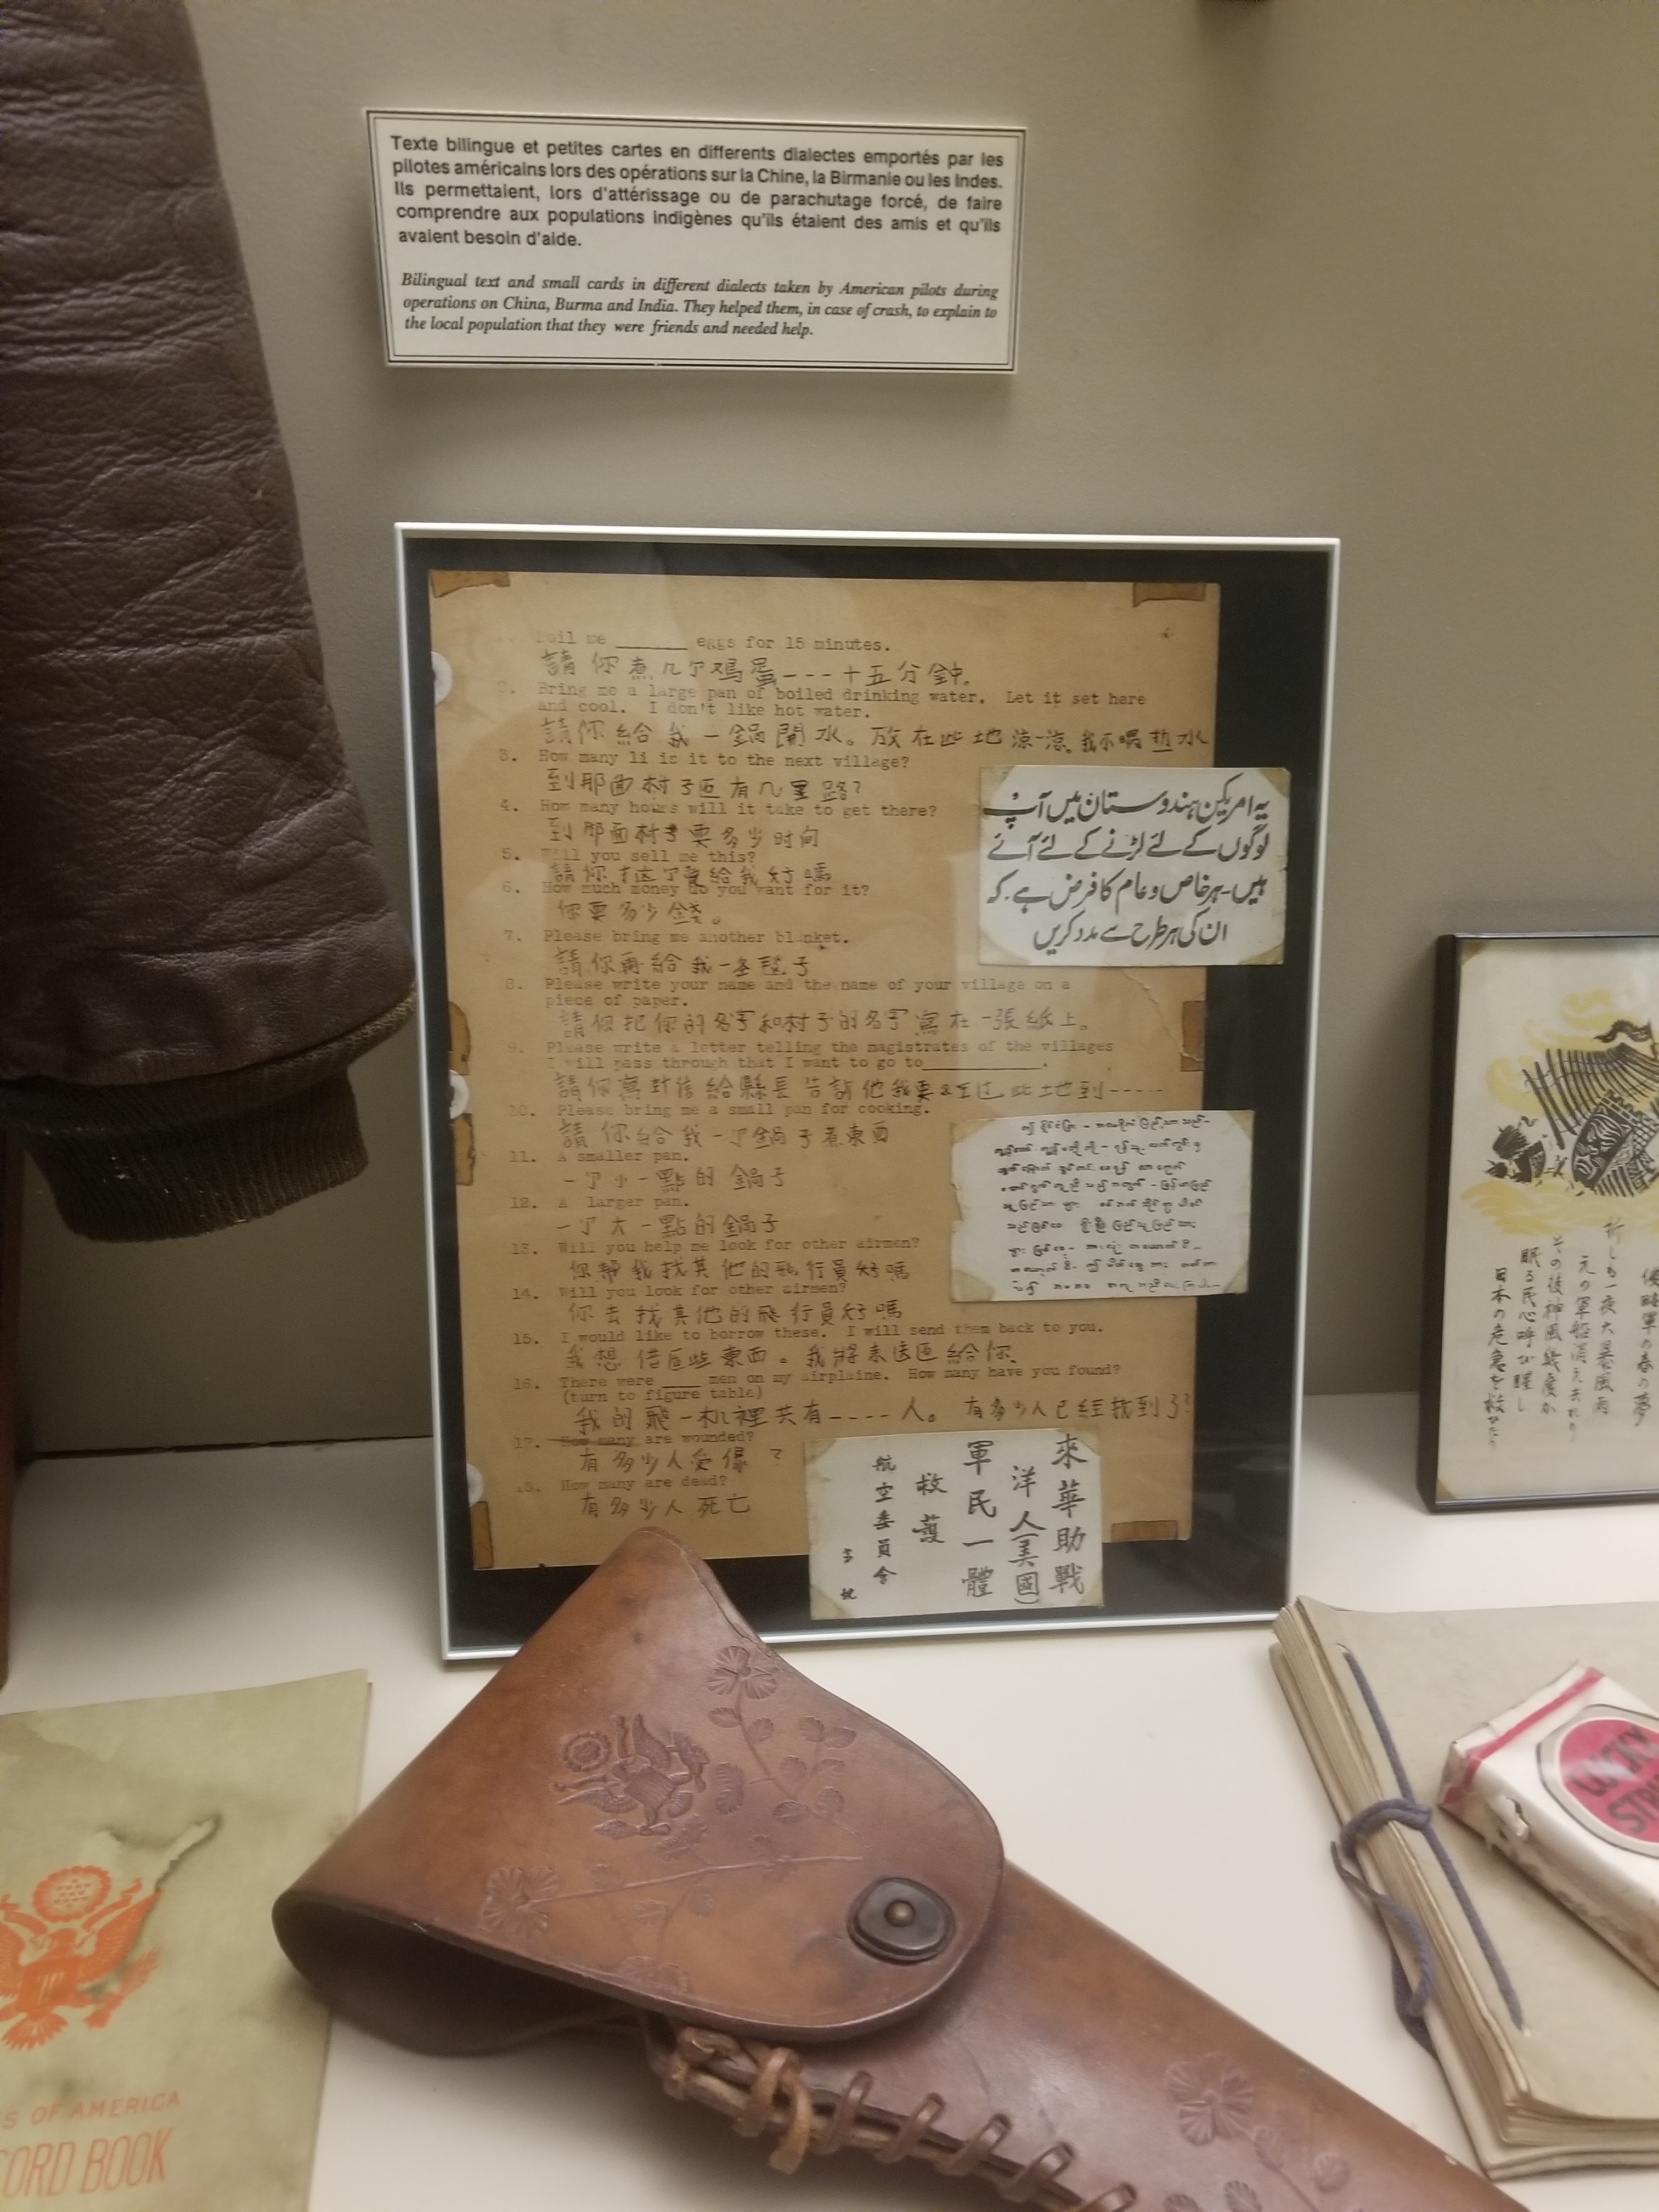 Texte bilingue et petites cartes en differents dialectes emportés par les
pilotes américains lors des opérations sur la Chine, la Birmanie ou les Indes.
Ils permettaient, lors d'attérissage ou de parachutage forcé, de faire
comprendre aux populations indigènes qu'ils étaient des amis et qu'ils
avaient besoin d'aide.
Bilingual text and small cards in different dialects taken by American pilots during
operations on China, Burma and India. They helped them, in case of crash, to explain to
the local population that they were friends and needed help.
Boil me ______ eggs for 15 minutes.
請你煮几个鸡蛋---十五分鈡。
2. Bring me a large pan of boiled drinking water. Let it set here
and cool. I don't like hot water.
請你給我一鍋開水。放在此地涼一涼。我不喝热水
3. How many li is it to the next village?
到那面村子 有几里路?
4. How many hours will it take to get there?
到那面村子要多少时间
5. Will you sell me this?
請你 这个賣給我好嗎
6. How much money do you want for it?
你要多少錢。
7. Please bring me another blanket.
請你再給我一条毯子
8. Please write your name and the name of your village on a
piece of paper.
請你把你的名字和村子的名字寫在一張紙上。
9. Please write a letter telling the magistrates of the villages
I will pass through that I want to go to___________.
請你寫封信給縣長告訴他我要 过此地到-----
10. Please bring me a small pan for cooking.
請你給我一个鍋子煮東西
11. A smaller pan.
一个小一點的鍋子
12. A larger pan.
一个大一點的鍋子
13. Will you help me look for other airmen?
你帮我找其他的飛行員好嗎
14. Will you look for other airmen?
你去找其他的飛行員好嗎
15. I would like to borrow these. I will send them back to you.
我想借 些東西。我將來送 給你
16. There were ____ men on my airplane. How many have you found?
(turn to figure table)
我的飛机裡共有----人。有多少人已經找到了?
17. How many are wounded?
有多少人受傷?
18. How many are dead?
有多少人死亡
یہ امریکن ہندوستان میں آپ
لوگوں کے لئے لڑنے کے لئے آئے
ہیں۔ ہر خاص و عام کا فرض ہے۔ کہ
ان کی ہر طرح سے مدد کریں
來華助戰
洋人(美國)
軍民一體
救護
航空委員會
折しも一夜大暴風雨
元の軍船消え去れり
その後神風幾度か
眠る民心呼び醒し
日本の危急を救ひたり
S OF AMERICA
ORD BOOK
LUCKY
STRI